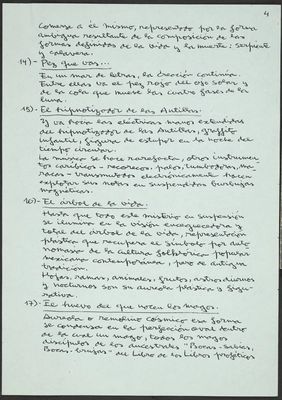 4
Comerse a él mismo, representado por la forma
ambigua resultante de la composición de las
formas definidas de la vida y la muerte: serpiente
y calavera.
14) - Pez que vas...
En un mar de letras, la creación continúa.
Entre ellas va el pez rojo del ojo solar y
de la cola que mueve las cuatro fases de la
luna.
15) - El hipnotizador de las Antillas.
Y va hacia las eléctricas manos extendidas
del hipnotizador de las Antillas, graffito
infantil, figura de estupor en la noche del
tiempo circular.
La música se hace rarefacta, otros instrumen
tos caribeños - recorecos, palos, tumbadoras, ma
racas - transmutados electrónicamente hacen
explotar sus notas en suspendidas burbujas
magnéticas.
16) - El árbol de la vida.
Hasta que todo este misterio en suspensión
se ilumina en la visión enceguecedora y
total del árbol de la vida, representación
plástica que recupera el símbolo por auto
nomasia de la cultura folklórica popular
mexicana contemporánea, pero de antigua
tradición.
Hojas, ramas, animales, frutos, astros diurnos
y nocturnos son su aureola plástica y figu-
rativa.
17) - El huevo del que nacen los magos.
Aureola o remolino cósmico esa forma
se condensa en la perfección oval dentro
de la cual un mago, todos los magos
discípulos de los ancestrales "Bocas-sabias,
Bocas-brujas" del Libro de los Libros proféticos